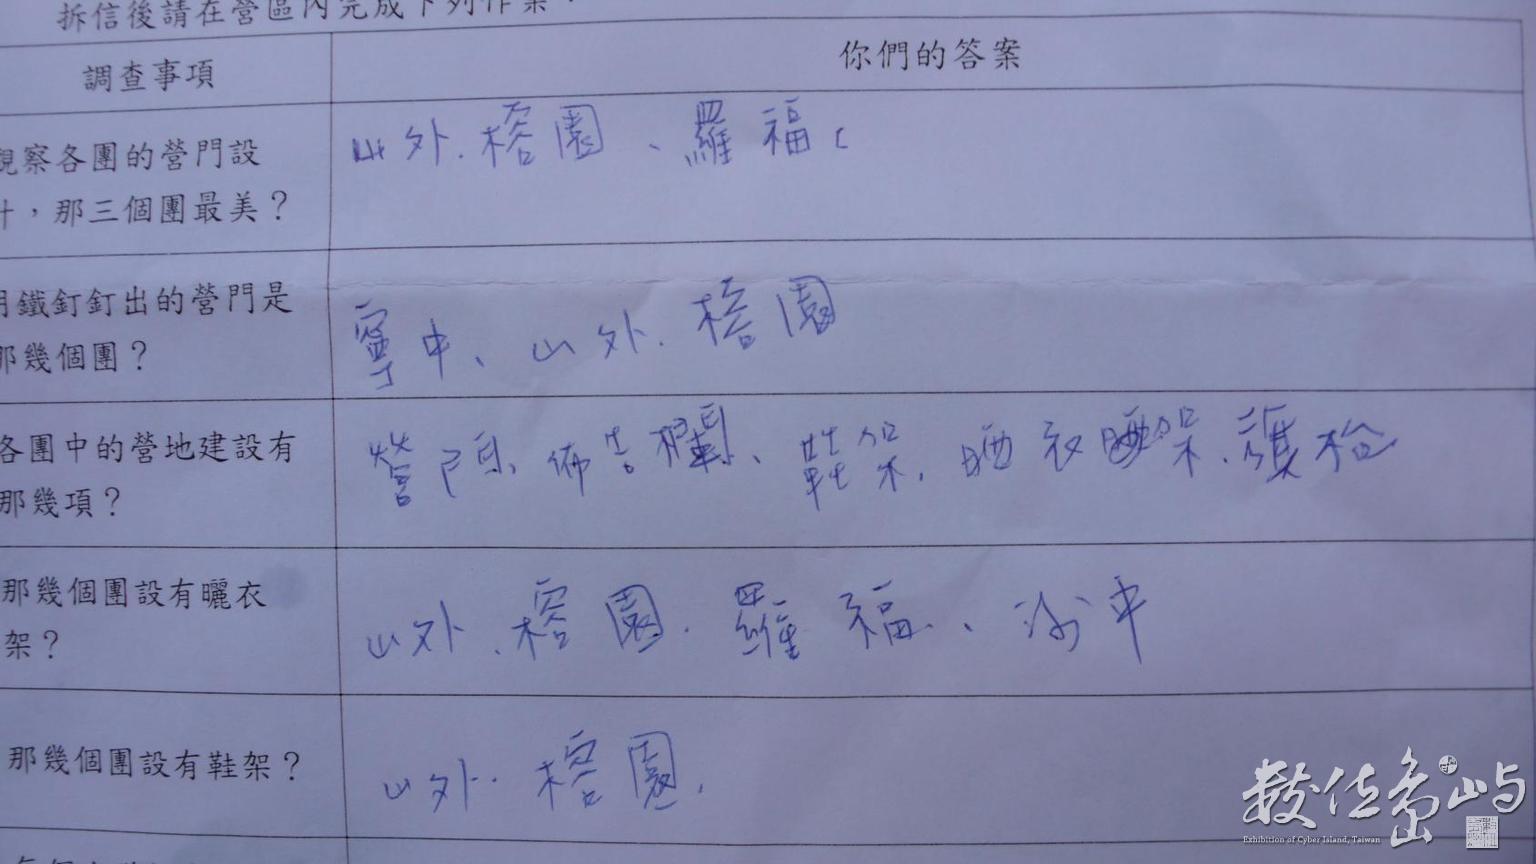 拆信後請在營區內完成下列作業：
調查事項
你們的答案
觀察各團的營門設
計，那三個團最美？
山外、榕園、羅福
用鐵釘釘出的營門是
那幾個團？
寧中、山外、榕園
各團中的營地建設有
那幾項？
佈告欄、鞋架、晒衣架、
那幾個團設有曬衣
架？
山外、榕園、羅福、
那幾個團設有鞋架？
山外、榕園
數位島嶼
Exhibition of Cyber Island, Taiwan